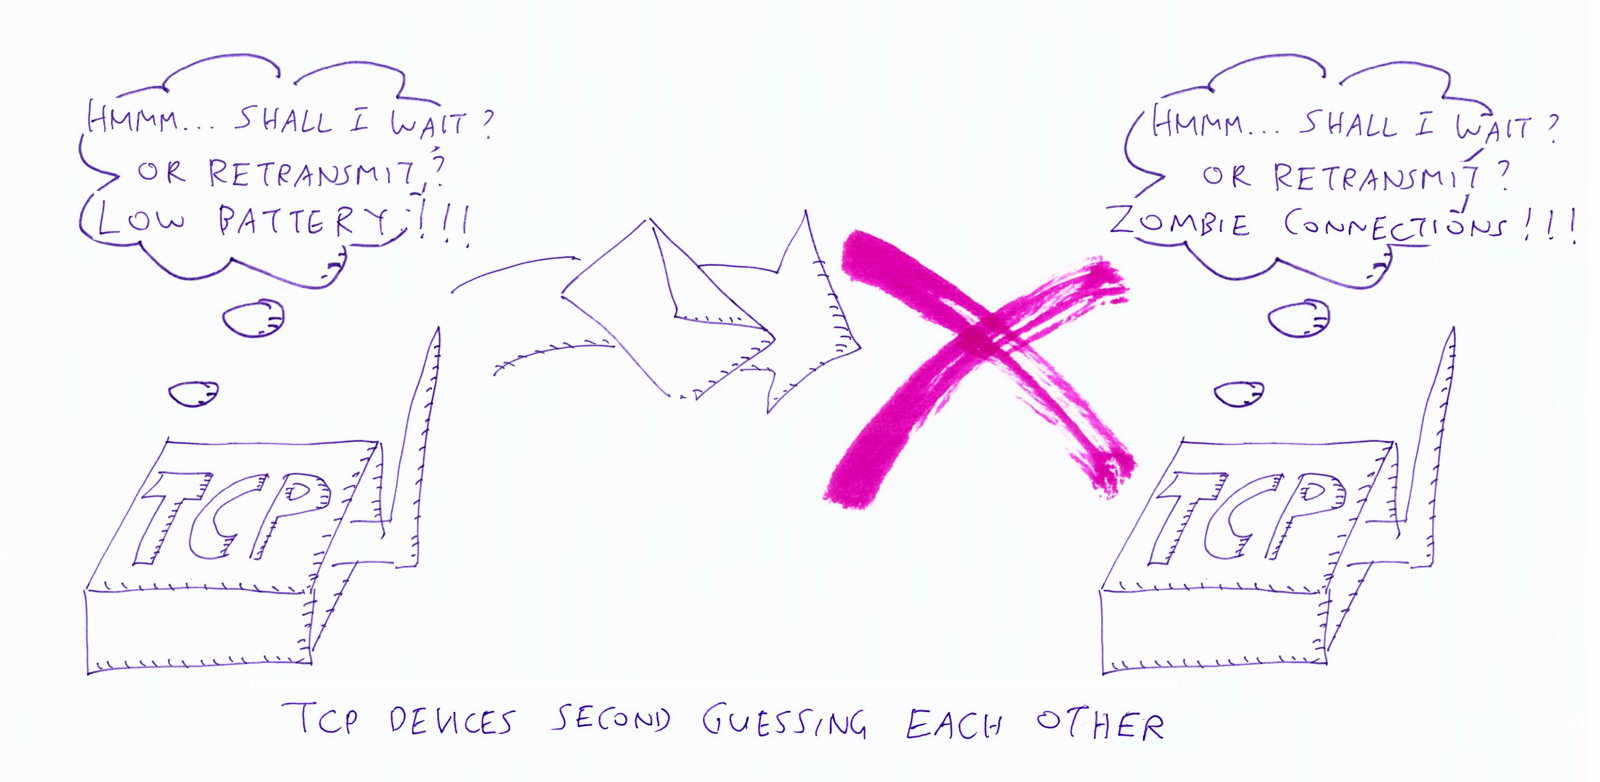 HMMM... SHALL I WAIT?
OR RETRANSMIT?
LOW BATTERY!!!
HMMM... SHALL I WAIT?
OR RETRANSMIT?
ZOMBIE CONNECTIONS!!!
TCP
TCP
TCP DEVICES SECOND GUESSING EACH OTHER